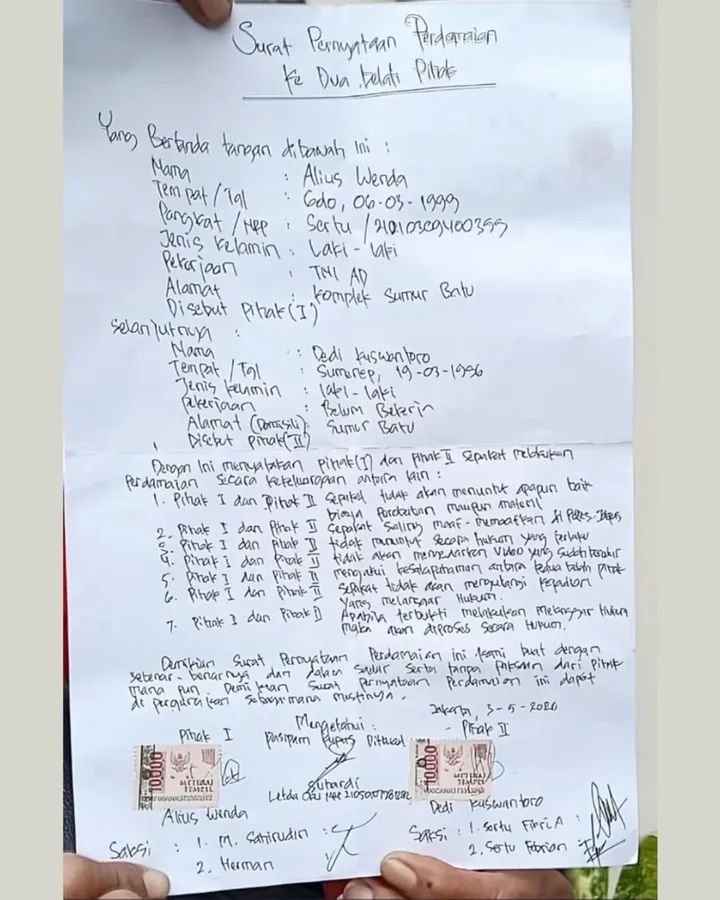 Surat Pernyataan Perdamaian
Ke Dua belah Pihak
Yang Bertanda tangan dibawah ini :
Nama : Alius Wenda
Tempat/Tgl : Gdo, 06-03-1999
Pangkat/NRP : Sertu /
Jenis kelamin : Laki-laki
Pekerjaan : TNI AD
Alamat : Komplek Sumur Batu
Disebut Pihak (I)
selanjutnya :
Nama : Dedi Kuswantoro
Tempat/Tgl : Sumenep, 19-03-1996
Jenis kelamin : laki-laki
Pekerjaan : Belum Bekerja
Alamat (Domisili) : Sumur Batu
Disebut Pihak (II)
Dengan Ini menyatakan Pihak (I) dan Pihak II Sepakat melakukan
Perdamaian Secara kekeluargaan antara lain :
1. Pihak I dan Pihak II Sepakat tidak akan menuntut apapun baik
biaya Perobatan maupun materil
2. Pihak I dan Pihak II Sepakat Saling maaf-memaafkan di
3. Pihak I dan Pihak II tidak menuntut secara hukum yang berlaku
4. Pihak I dan Pihak II tidak akan mengedarkan Video yang sudah
5. Pihak I dan Pihak II mengakui antara kedua belah Pihak
6. Pihak I dan Pihak II Sepakat tidak akan mengulangi kejadian
yang melanggar Hukum.
7. Pihak I dan Pihak II Apabila terbukti melakukan melanggar Hukum
maka akan diproses Secara Hukum.
Demikian Surat Pernyataan Perdamaian ini kami buat dengan
sebenar-benarnya dan dalam Sadar Serta tanpa Paksaan dari Pihak
mana pun. Demikian Surat Pernyataan Perdamaian ini dapat
di pergunakan Sebagaimana mestinya.
Jakarta, 3-5-2026
Pihak I
Mengetahui :
Pihak II
10000
METERAI
TEMPEL
10000
METERAI
TEMPEL
Letda
Alius Wenda
Dedi Kuswantoro
Saksi : 1. M. Sahirudin :
2. Herman
Saksi : 1. Sertu Fikri.A :
2. Sertu Febrian